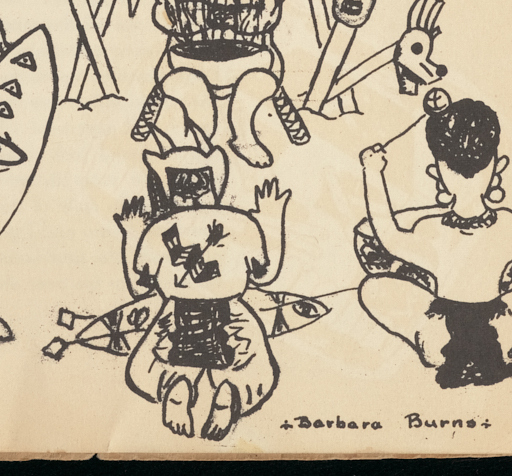 ÷Barbara Burns÷